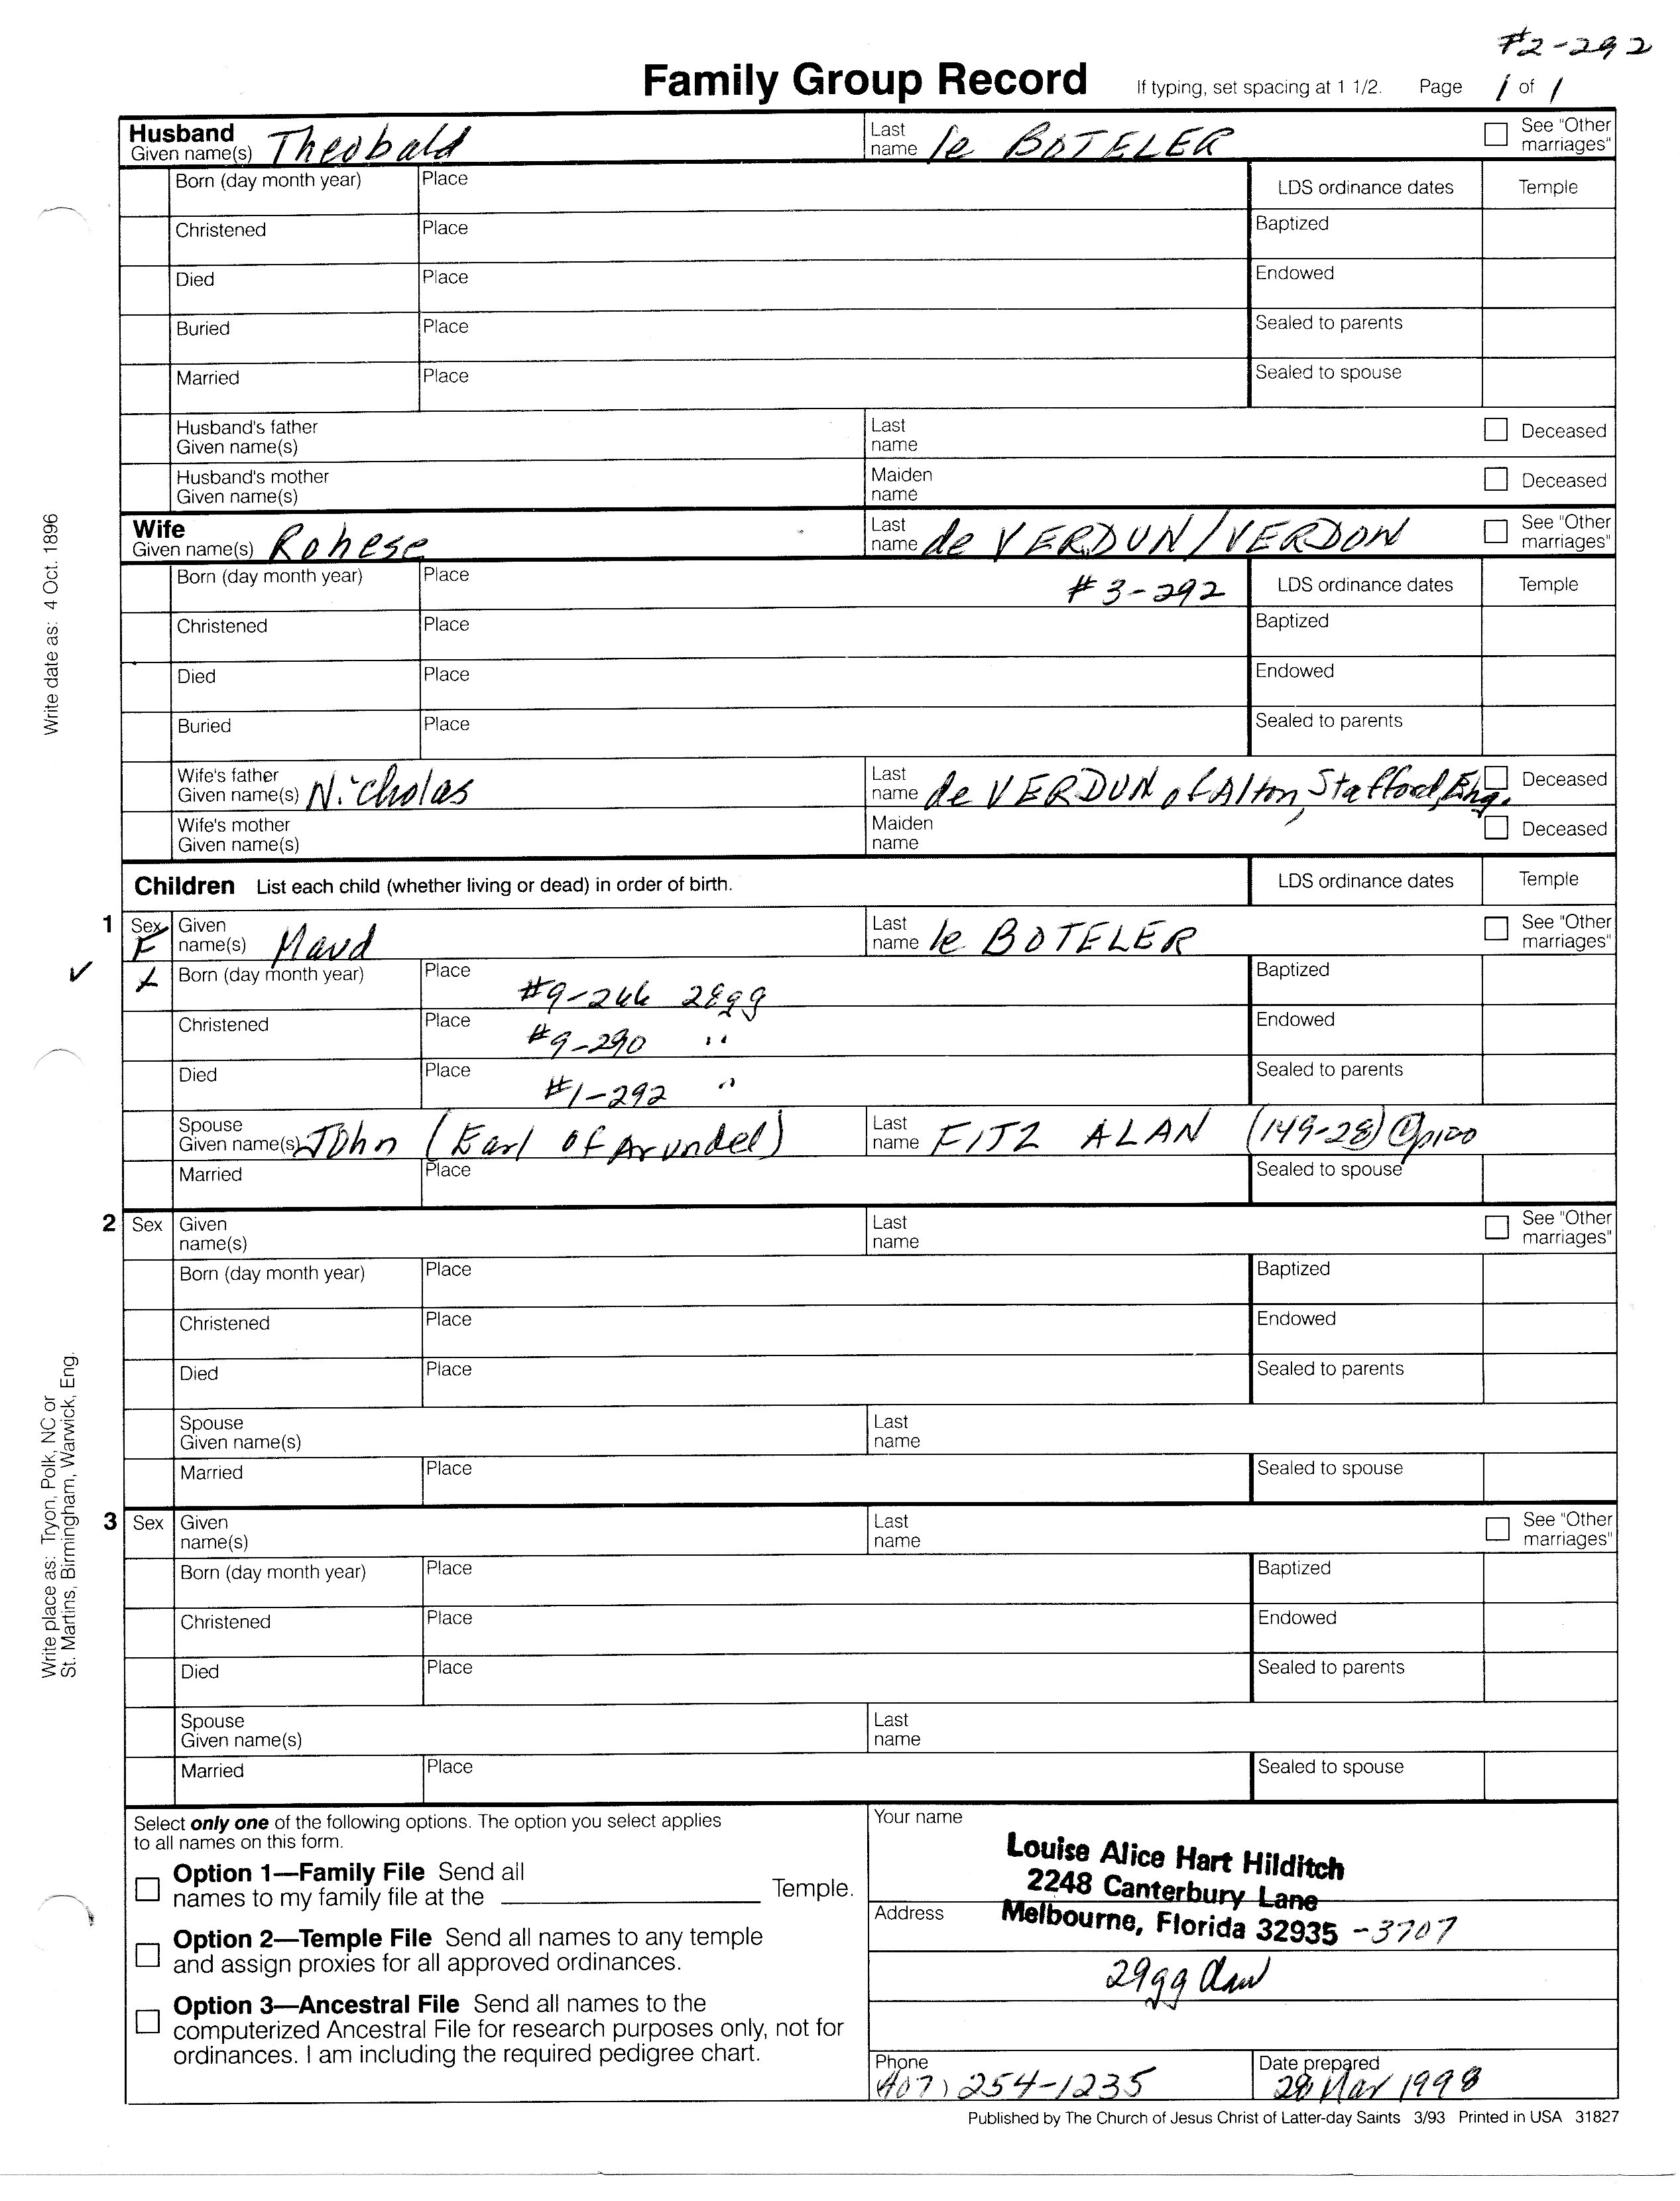 #2-292
Family Group Record If typing, set spacing at 1 1/2. Page 1 of 1
Husband Given name(s) Theobald Last name le BOTELER See "Other marriages"
Born (day month year) Place LDS ordinance dates Temple
Christened Place Baptized
Died Place Endowed
Buried Place Sealed to parents
Married Place Sealed to spouse
Husband's father Given name(s) Last name Deceased
Husband's mother Given name(s) Maiden name Deceased
Wife Given name(s) Rohese Last name de VERDUN/VERDON See "Other marriages"
Born (day month year) Place #3-292 LDS ordinance dates Temple
Christened Place Baptized
Died Place Endowed
Buried Place Sealed to parents
Wife's father Given name(s) Nicholas Last name de VERDUN of Alton, Stafford, Eng. Deceased
Wife's mother Given name(s) Maiden name Deceased
Children List each child (whether living or dead) in order of birth. LDS ordinance dates Temple
1 Sex F Given name(s) Maud Last name le BOTELER See "Other marriages"
Born (day month year) Place #9-266 28gg Baptized
Christened Place #9-290 " Endowed
Died Place #1-292 " Sealed to parents
Spouse Given name(s) John (Earl of Arundel) Last name FITZ ALAN (149-28)
Married Place Sealed to spouse
2 Sex Given name(s) Last name See "Other marriages"
Born (day month year) Place Baptized
Christened Place Endowed
Died Place Sealed to parents
Spouse Given name(s) Last name
Married Place Sealed to spouse
3 Sex Given name(s) Last name See "Other marriages"
Born (day month year) Place Baptized
Christened Place Endowed
Died Place Sealed to parents
Spouse Given name(s) Last name
Married Place Sealed to spouse
Select only one of the following options. The option you select applies
to all names on this form.
Option 1—Family File Send all
names to my family file at the Temple.
Option 2—Temple File Send all names to any temple
and assign proxies for all approved ordinances.
Option 3—Ancestral File Send all names to the
computerized Ancestral File for research purposes only, not for
ordinances. I am including the required pedigree chart.
Your name
Louise Alice Hart Hilditch
2248 Canterbury Lane
Address Melbourne, Florida 32935 -3707
29gg
Phone (407) 254-1235 Date prepared 28 Mar 1998
Published by The Church of Jesus Christ of Latter-day Saints 3/93 Printed in USA 31827
Write date as: 4 Oct. 1896
Write place as: Tryon, Polk, NC or
St. Martins, Birmingham, Warwick, Eng.